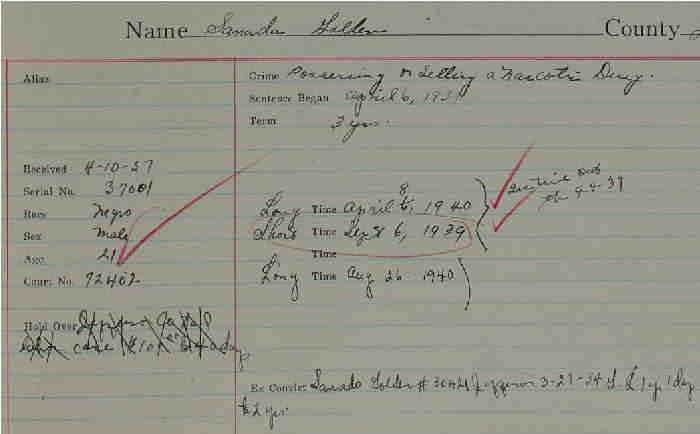 Name Sanada Golden County
Alias
Crime Possessing or Selling a Narcotic Drug.
Sentence Began April 6, 1937
Term 3 yrs.
Received 4-10-37
Serial No. 37001
Race Negro
Sex Male
Age 21
Court No. 72402
Long Time April 8, 1940
Short Time Sept 6, 1939
Time
Long Time Aug 26 1940
9-4-39
Hold Over
case $10
Ex Convict Sanado Golden # 30421 Jefferson 3-27-34 1 yr 1 day
to 2 yrs.